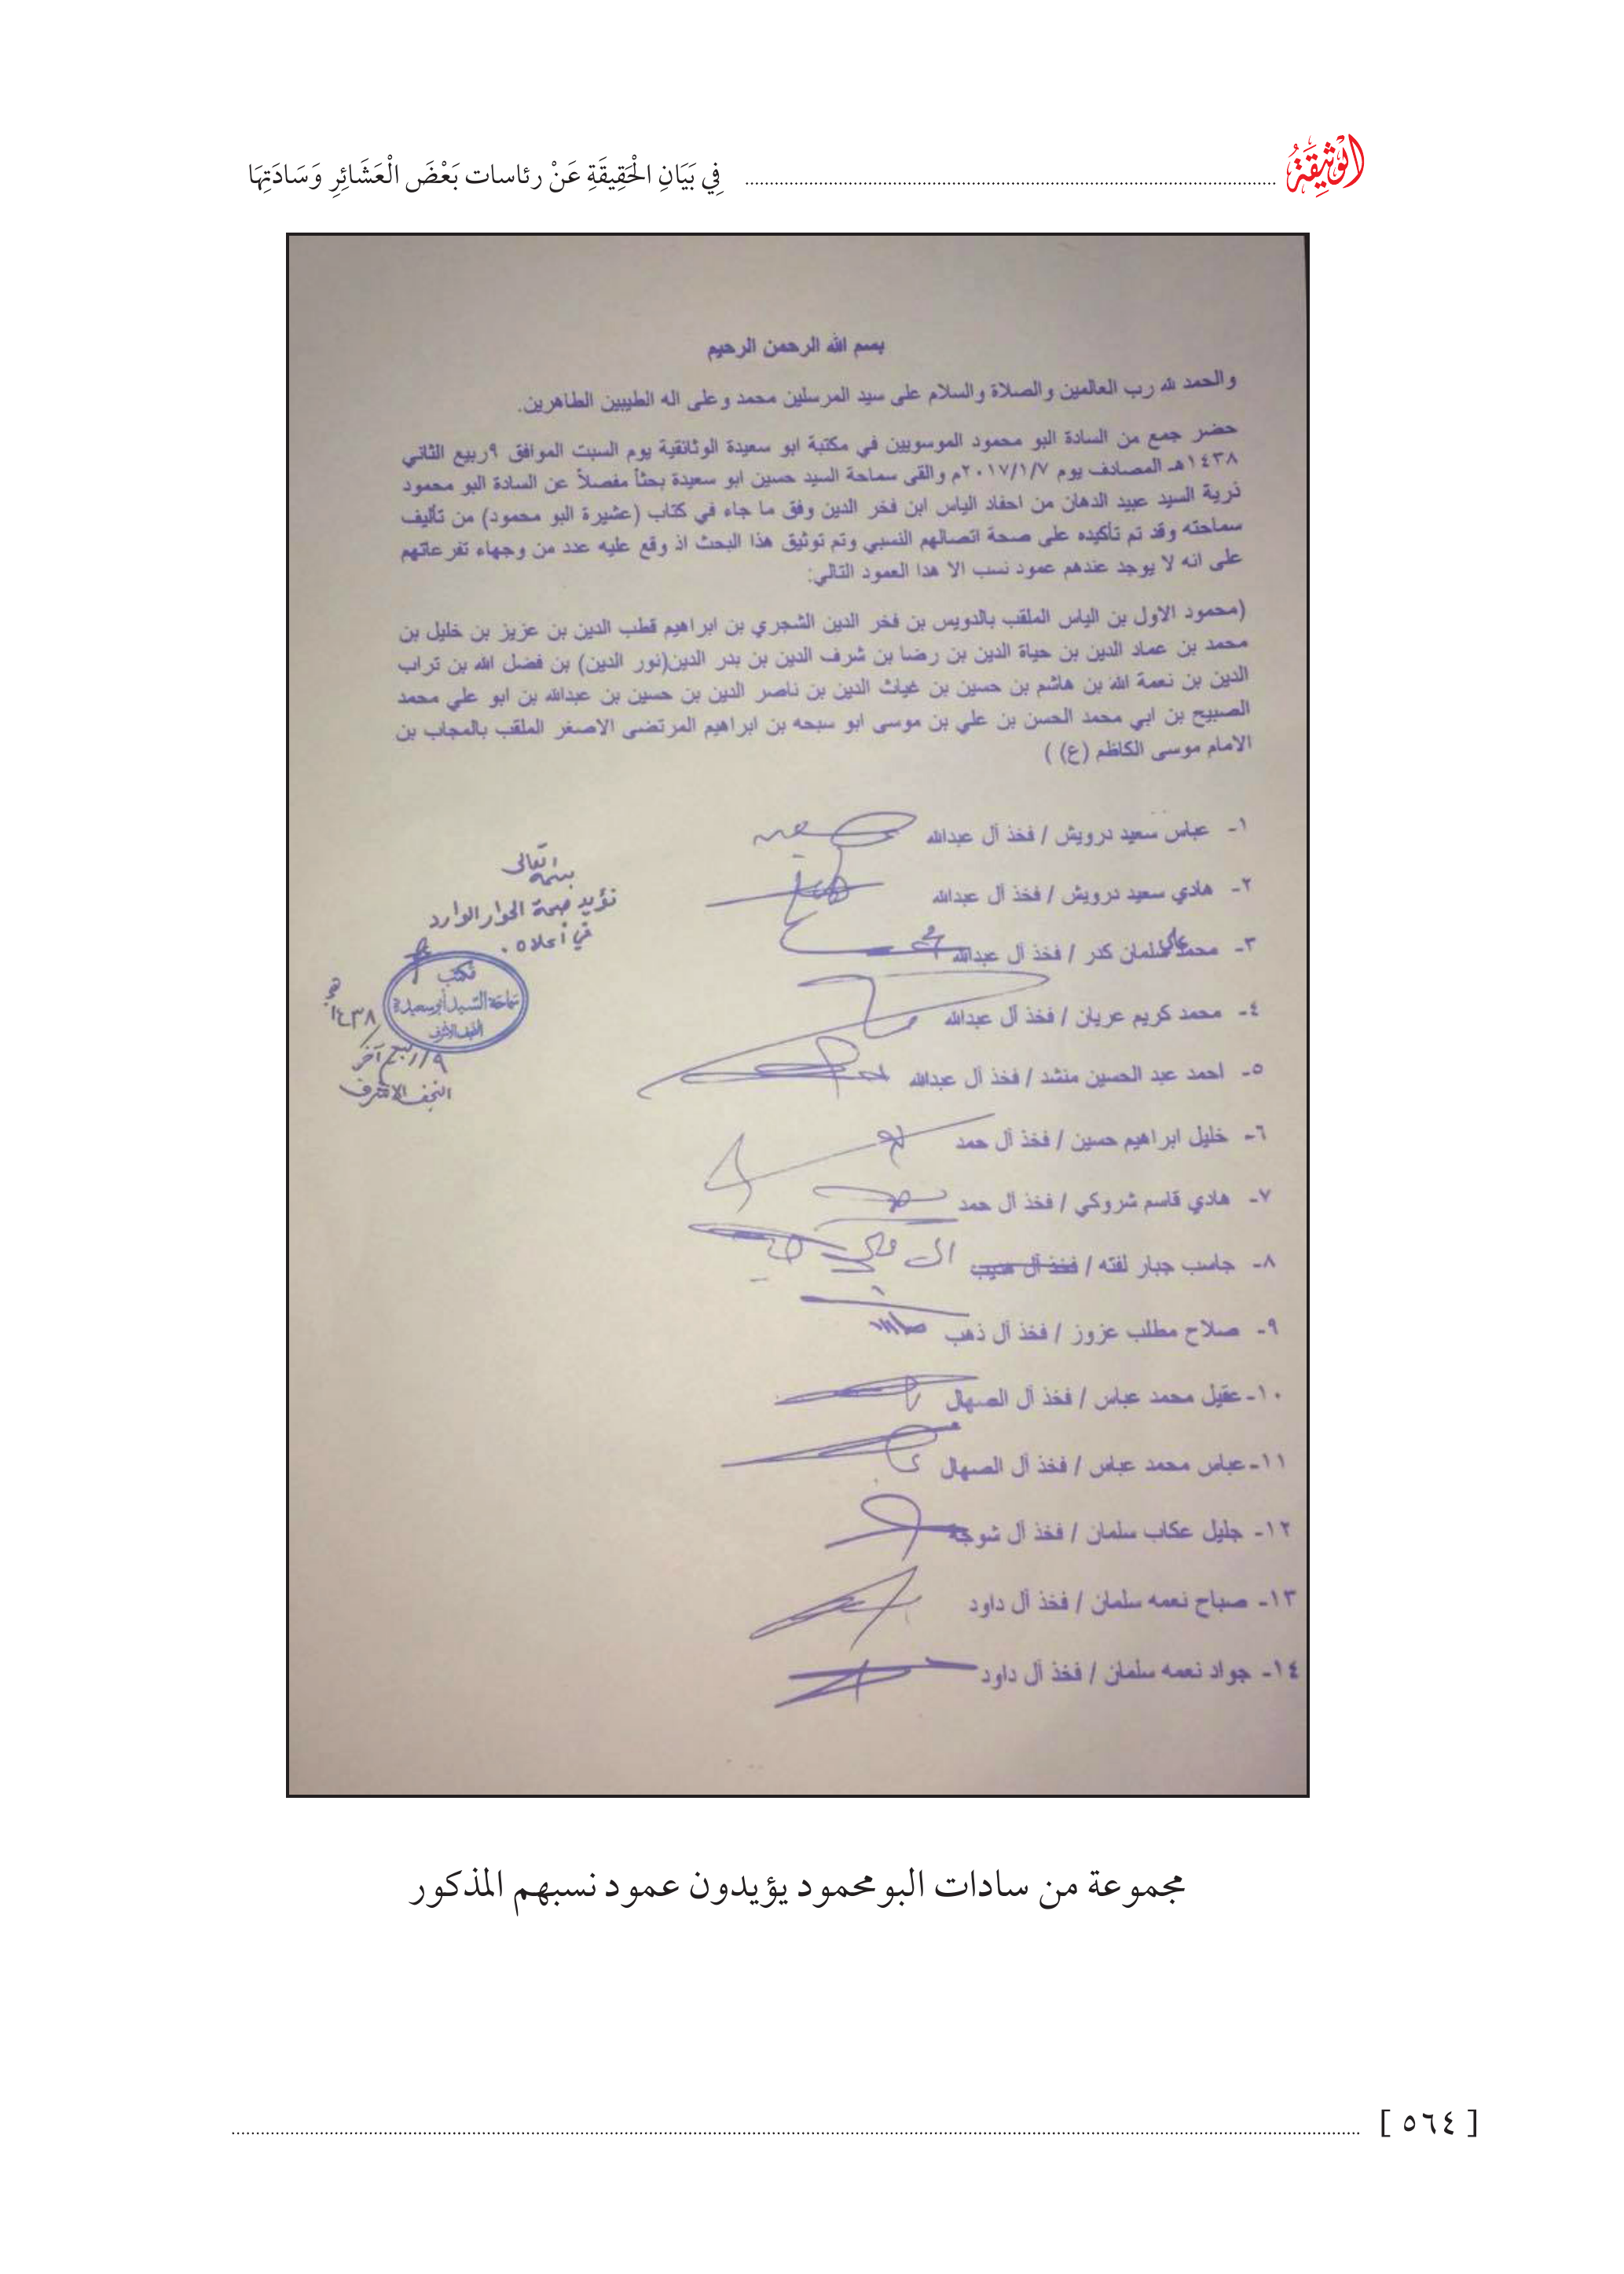 الوثيقة ... في بَيَانِ الْحَقِيقَةِ عَنْ رئاسات بَعْضَ الْعَشَائِرِ وَسَادَتِهَا
بسم الله الرحمن الرحيم
والحمد لله رب العالمين والصلاة والسلام على سيد المرسلين محمد وعلى اله الطيبين الطاهرين.
حضر جمع من السادة البو محمود الموسويين في مكتبة ابو سعيدة الوثائقية يوم السبت الموافق ٩ ربيع الثاني
١٤٣٨هـ المصادف يوم ٢٠١٧/١/٧م والقى سماحة السيد حسين ابو سعيدة بحثاً مفصلاً عن السادة البو محمود
ذرية السيد عبيد الدهان من احفاد الياس ابن فخر الدين وفق ما جاء في كتاب (عشيرة البو محمود) من تأليف
سماحته وقد تم تأكيده على صحة اتصالهم النسبي وتم توثيق هذا البحث اذ وقع عليه عدد من وجهاء تفرعاتهم
على انه لا يوجد عندهم عمود نسب الا هدا العمود التالي:
(محمود الاول بن الياس الملقب بالدويس بن فخر الدين الشجري بن ابراهيم قطب الدين بن عزيز بن خليل بن
محمد بن عماد الدين بن حياة الدين بن رضا بن شرف الدين بن بدر الدين(نور الدين) بن فضل الله بن تراب
الدين بن نعمة الله بن هاشم بن حسين بن غياث الدين بن ناصر الدين بن حسين بن عبدالله بن ابو علي محمد
الصبيح بن ابي محمد الحسن بن علي بن موسى ابو سبحه بن ابراهيم المرتضى الاصغر الملقب بالمجاب بن
الامام موسى الكاظم (ع) )
١- عباس سعيد درويش / فخذ آل عبدالله
٢- هادي سعيد درويش / فخذ آل عبدالله
٣- محمد علي سلمان كدر / فخذ آل عبدالله
٤- محمد كريم عريان / فخذ آل عبدالله
٥- احمد عبد الحسين منشد / فخذ آل عبدالله
٦- خليل ابراهيم حسين / فخذ آل حمد
٧- هادي قاسم شروكي / فخذ آل حمد
٨- جاسب جبار لفته / فخذ آل
٩- صلاح مطلب عزوز / فخذ آل ذهب
١٠- عقيل محمد عباس / فخذ آل الصبهال
١١- عباس محمد عباس / فخذ آل الصبهال
١٢- جليل عكاب سلمان / فخذ آل شوجة
١٣- صباح نعمه سلمان / فخذ آل داود
١٤- جواد نعمه سلمان / فخذ آل داود
بسمه تعالى
نؤيد صحة الحوار الوارد
في أعلاه.
مكتب
سماحة السيد أبو سعيدة
النجف الأشرف
٩/ربيع آخر/١٤٣٨هـ
النجف الاشرف
مجموعة من سادات البو محمود يؤيدون عمود نسبهم المذكور
[ ٥٦٤ ]